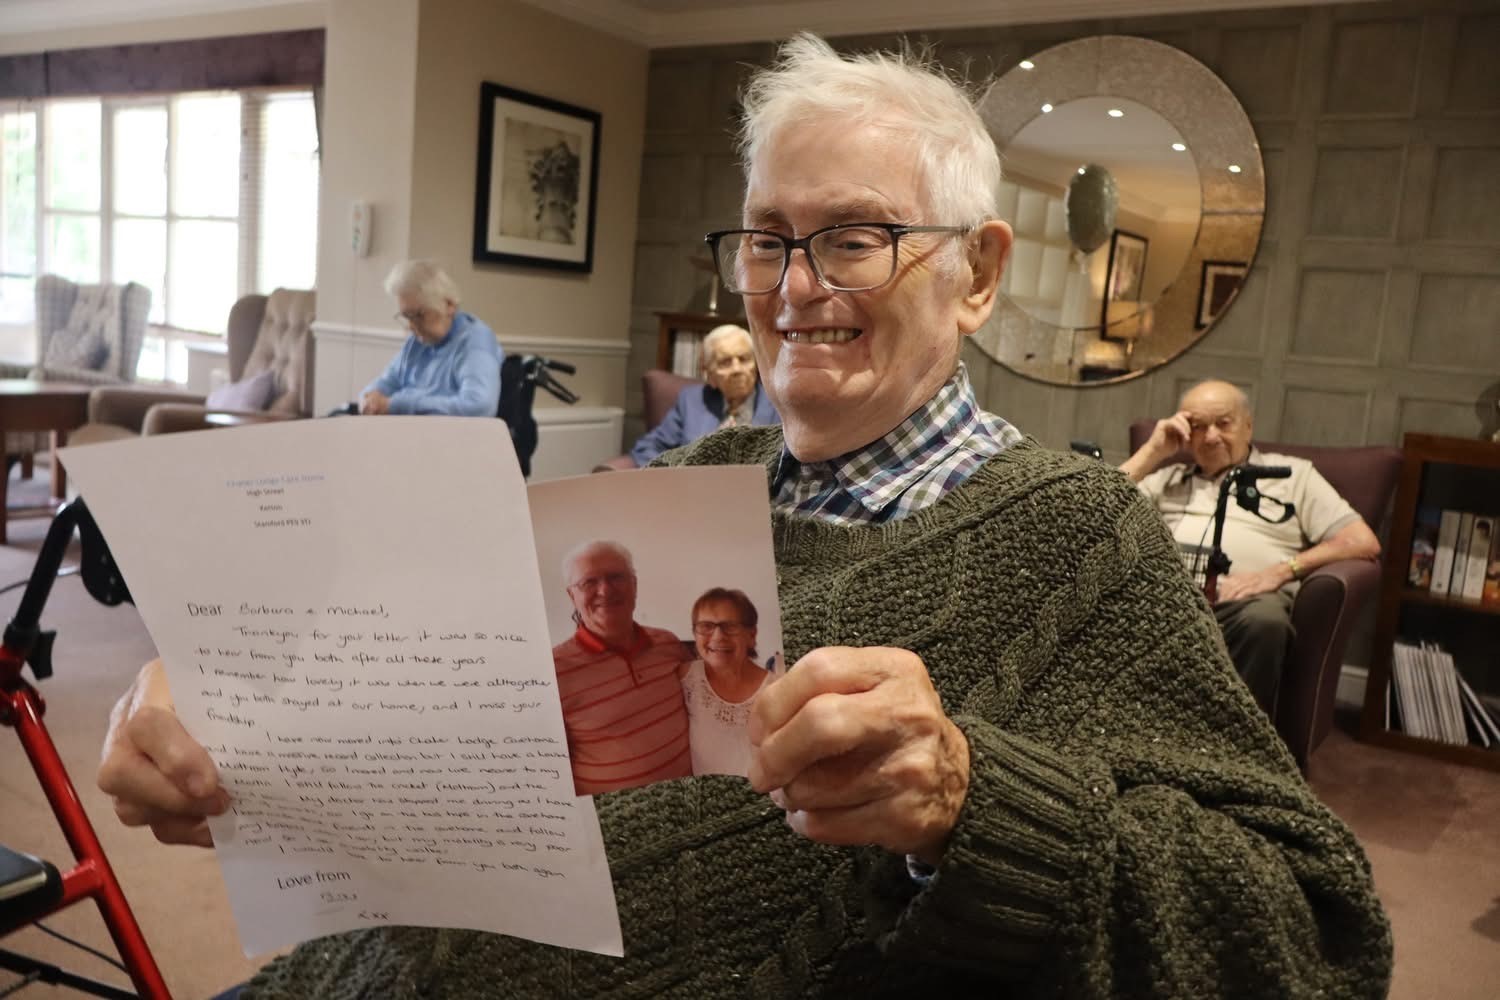 Chater Lodge Care Home
High Street
Ketton
Stamford PE9 3TJ
Dear Barbara & Michael,
Thankyou for your letter it was so nice
to hear from you both after all these years
I remember how lovely it was when we were alltogether
and you both stayed at our home, and I miss your
friendship.
I have now moved into Chater Lodge Carehome
and have a massive record collection but I still have a house
Mottram Hyde, so I moved and now live nearer to my
Martin. I still follow the cricket (Mottram) and the
My doctor has stopped me driving as I have
so I go on the bus trips in the carehome
friends in the carehome and follow
but my mobility is very poor
mobility walker.
I would to hear from you both again
Love from
xxx